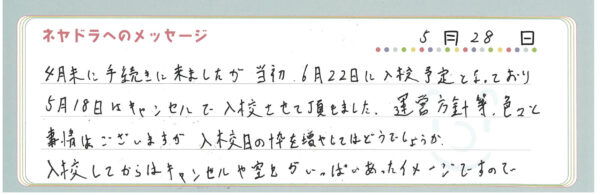 ネヤドラへのメッセージ
5月28日
4月末に手続きに来ましたが当初、6月22日に入校予定となっており
5月18日はキャンセルで入校させて頂きました。運営方針等、色々と
事情はございますが入校日の枠を増やしてはどうでしょうか。
入校してからはキャンセルや空きがいっぱいあったイメージですので